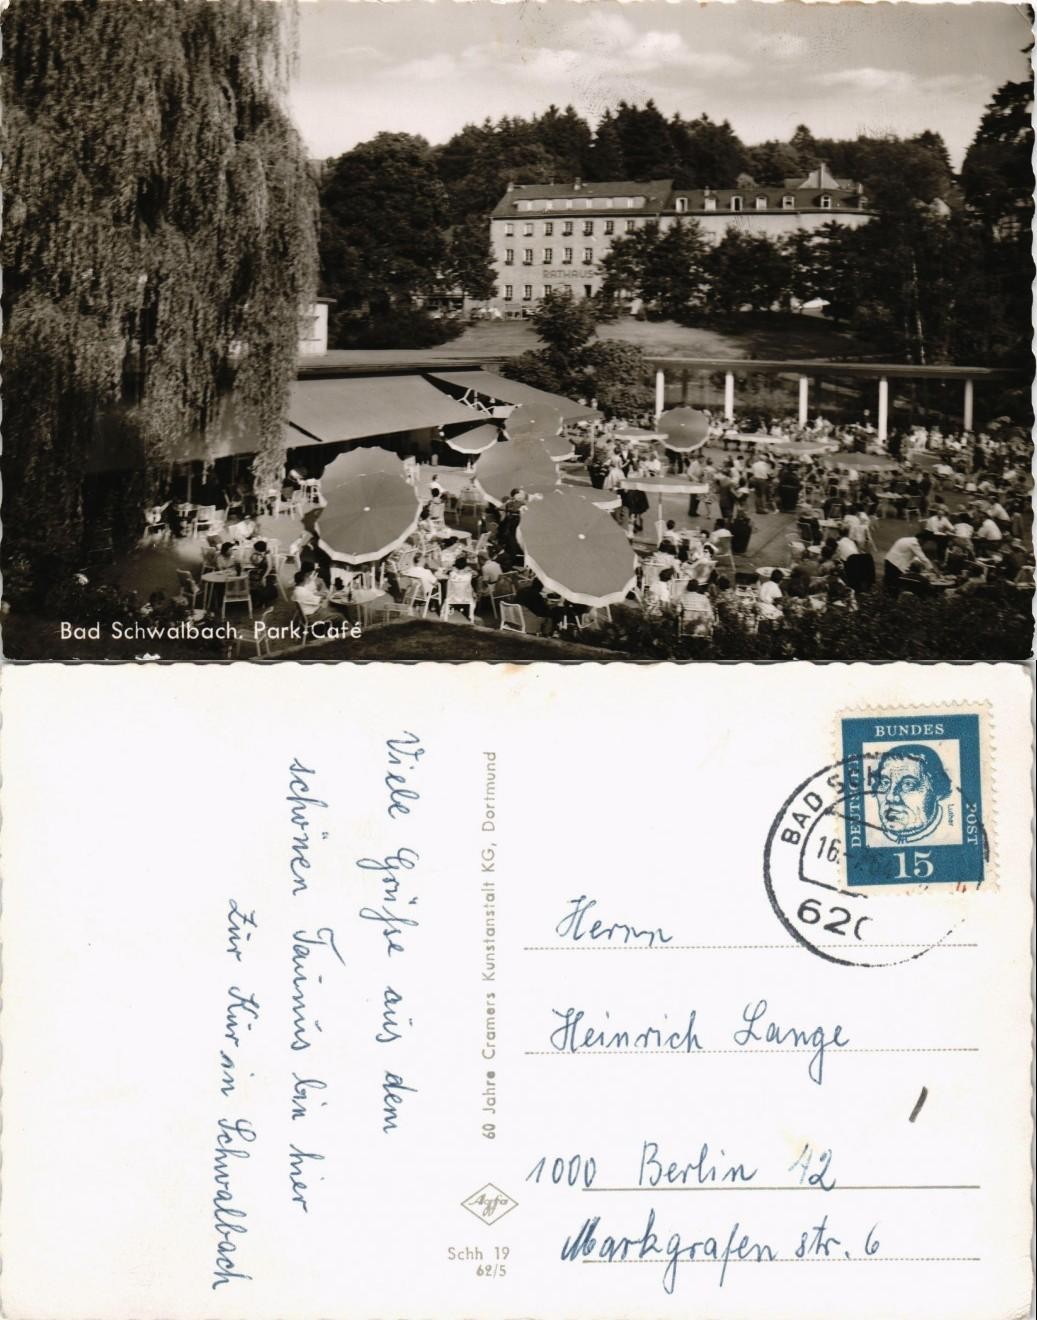 RATHAUS
Bad Schwalbach. Park-Café
Viele Grüße aus dem
schönen Taunus bin hier
zur Kur in Schwalbach
60 Jahre Cramers Kunstanstalt KG, Dortmund
Agfa
Schh 19
62/5
DEUTSCHE
BUNDES
POST
Luther
15
BAD SCH
16.
620
Herrn
Heinrich Lange
1000 Berlin 42
Markgrafen str. 6